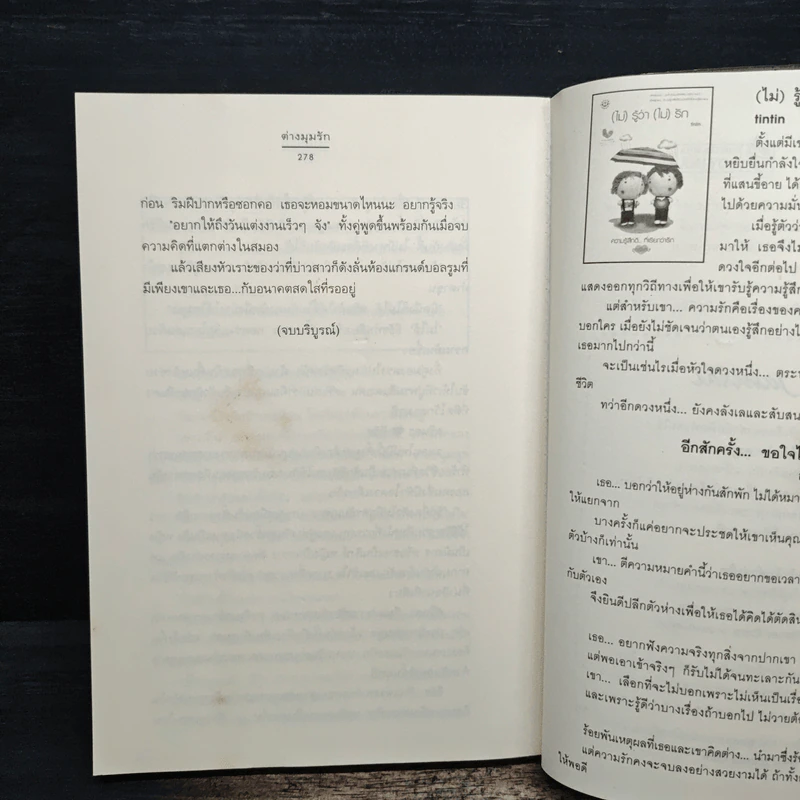 ต่างมุมรัก
278
ก่อน ริมฝีปากหรือซอกคอ เธอจะหอมขนาดไหนนะ อยากรู้จริง
"อยากให้ถึงวันแต่งงานเร็วๆ จัง" ทั้งคู่พูดขึ้นพร้อมกันเมื่อจบ
ความคิดที่แตกต่างในสมอง
แล้วเสียงหัวเราะของว่าที่บ่าวสาวก็ดังลั่นห้องแกรนด์บอลรูมที่
มีเพียงเขาและเธอ...กับอนาคตสดใสที่รออยู่
(จบบริบูรณ์)
(ไม่) รู้ว่า (ไม่) รัก
tintin
ความรู้สึกดี...ที่เรียกว่ารัก
(ไม่) รู้
tintin
ตั้งแต่มีเข
หยิบยื่นกำลังใจ
ที่แสนขี้อาย ได้
ไปด้วยความมั่น
เมื่อรู้ตัวว่
มาให้ เธอจึงไม่
ดวงใจอีกต่อไป
แสดงออกทุกวิถีทางเพื่อให้เขารับรู้ความรู้สึก
แต่สำหรับเขา... ความรักคือเรื่องของค
บอกใคร เมื่อยังไม่ชัดเจนว่าตนเองรู้สึกอย่างไ
เธอมากไปกว่านี้
จะเป็นเช่นไรเมื่อหัวใจดวงหนึ่ง... ตระห
ชีวิต
ทว่าอีกดวงหนึ่ง... ยังคงลังเลและสับสน
อีกสักครั้ง... ขอใจไ
เธอ... บอกว่าให้อยู่ห่างกันสักพัก ไม่ได้หมา
ให้แยกจาก
บางครั้งก็แค่อยากจะประชดให้เขาเห็นคุณ
ตัวบ้างก็เท่านั้น
เขา... ตีความหมายคำนี้ว่าเธออยากขอเวลา
กับตัวเอง
จึงยินดีปลีกตัวห่างเพื่อให้เธอได้คิดได้ตัดสิน
เธอ... อยากฟังความจริงทุกสิ่งจากปากเขา
แต่พอเอาเข้าจริงๆ ก็รับไม่ได้จนทะเลาะกัน
เขา... เลือกที่จะไม่บอกเพราะไม่เห็นเป็นเรื่อ
และเพราะรู้ดีว่าบางเรื่องถ้าบอกไป ไม่วายต้อ
ร้อยพันเหตุผลที่เธอและเขาคิดต่าง... นำมาซึ่งร้อ
แต่ความรักคงจะจบลงอย่างสวยงามได้ ถ้าทั้ง
ให้พอดี